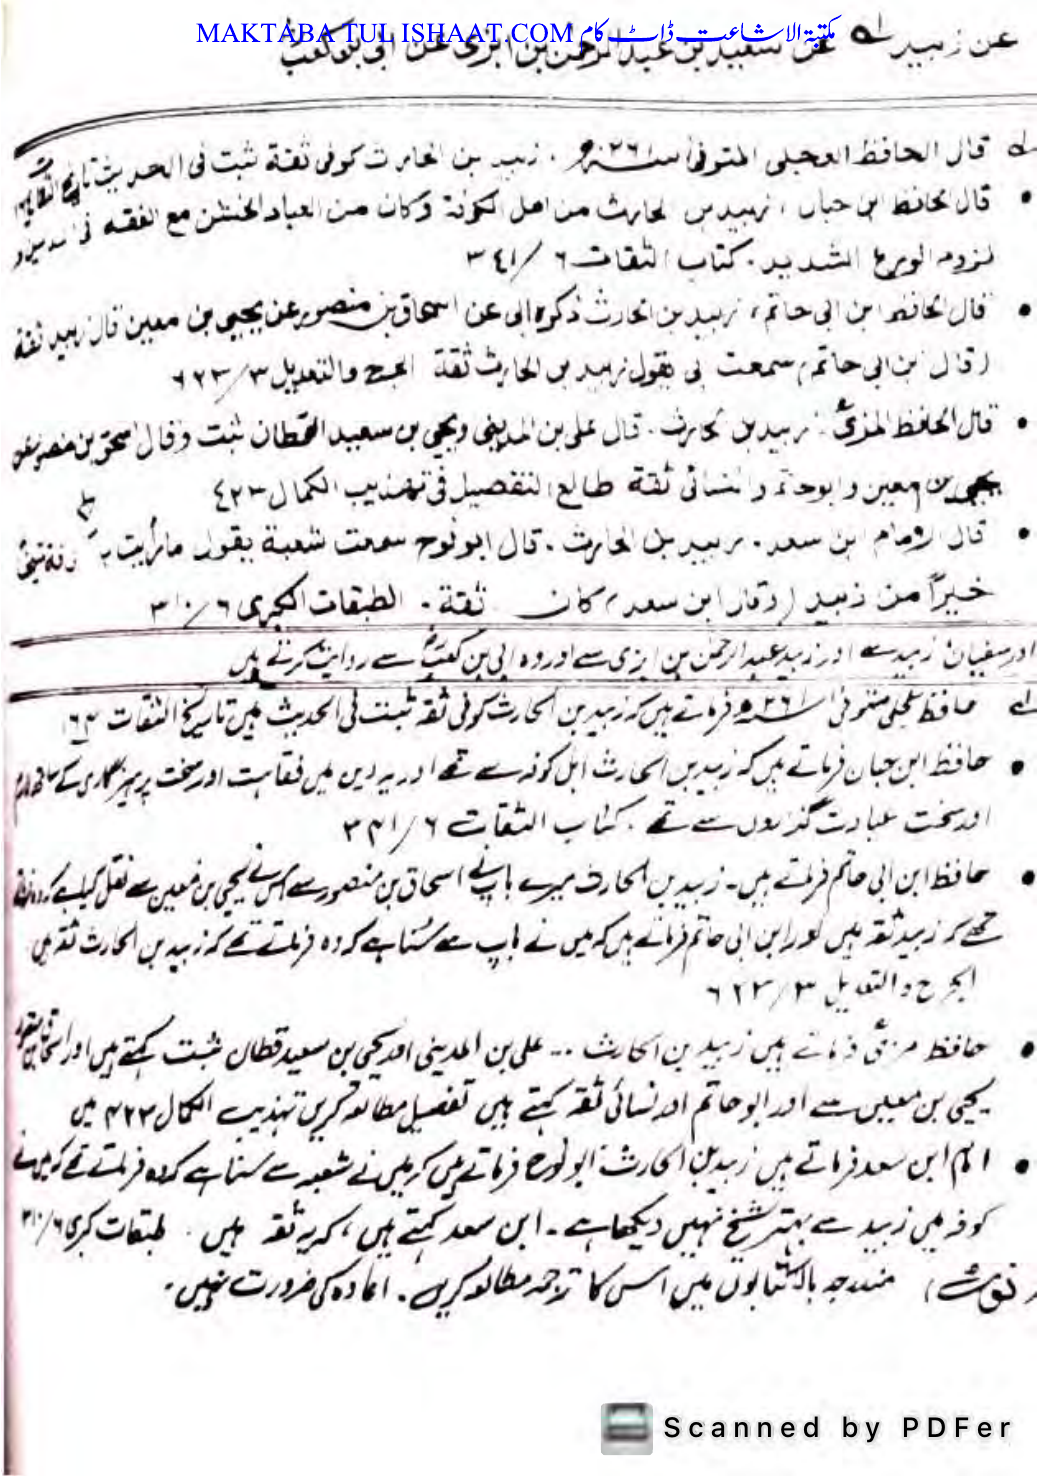 MAKTABA TUL ISHAAT.COM مکتبۃ الاشاعت ڈاٹ کام
عن زبید ؂۱ عن سعید بن عبد الرحمن بن ابزی عن ابی بن کعب
؂۱ قال الحافظ العجلی المتوفی ۲٦۱ھ . زبید بن الحارث کوفی ثقة ثبت فی الحدیث تاریخ الثقات
• قال الحافظ ابن حبان زبید بن الحارث من اهل الکوفة وکان من العباد الخشن مع الفقه فی الدین و
لزوم الورع الشدید . کتاب الثقات ٦/۳٤۱
• قال الحافظ ابن ابی حاتم، زبید بن الحارث ذکره ابی عن اسحاق بن منصور عن یحیی بن معین قال زبید ثقة
(قال ابن ابی حاتم) سمعت ابی یقول زبید بن الحارث ثقة الجرح والتعدیل ۳/٦۲۳
• قال الحافظ المزیؒ زبید بن الحارث . قال علی بن المدینی ویحیی بن سعید القطان ثبت وقال اسحق بن منصور عن
یحیی بن معین وابو حاتم والنسائی ثقة طالع التفصیل فی تهذیب الکمال ٤۲۳
• قال الامام ابن سعد . زبید بن الحارث . قال ابو نوح سمعت شعبة یقول ما رأیت بالکوفة شیخا
خیراً من زبید (وقال ابن سعد) کان ثقة . الطبقات الکبری ٦/۳۱۰
اور سفیان زبید سے اور زبید عبد الرحمن بن ابزی سے اور وہ ابی بن کعبؓ سے روایت کرتے ہیں
؂۱ حافظ عجلی متوفی ۲٦۱ھ فرماتے ہیں کہ زبید بن الحارث کوفی ثقہ ثبت فی الحدیث ہیں تاریخ الثقات ۱٦۳
• حافظ ابن حبان فرماتے ہیں کہ زبید بن الحارث اہل کوفہ سے تھے اور یہ دین میں فقاہت اور سخت پرہیزگاری کے ساتھ
اور سخت عبادت گذاروں سے تھے . کتاب الثقات ٦/۳۴۱
• حافظ ابن ابی حاتم فرماتے ہیں ۔ زبید بن الحارث میرے باپ نے اسحاق بن منصور سے اس نے یحیی بن معین سے نقل کیا ہے کہ وہ فرماتے
تھے کہ زبید ثقہ ہیں اور ابن ابی حاتم فرماتے ہیں کہ میں نے باپ سے سنا ہے کہ وہ فرماتے تھے کہ زبید بن الحارث ثقہ ہیں
الجرح والتعدیل ۳/٦۲۳
• حافظ مزیؒ فرماتے ہیں زبید بن الحارث ۔۔ علی بن المدینی اور یحیی بن سعید قطان ثبت کہتے ہیں اور اسحاق بن منصور
یحیی بن معین سے اور ابو حاتم اور نسائی ثقہ کہتے ہیں تفصیل مطالعہ کریں تہذیب الکمال ۴۲۳ میں
• امام ابن سعد فرماتے ہیں زبید بن الحارث ابو نوح فرماتے ہیں کہ میں نے شعبہ سے سنا ہے کہ وہ فرماتے تھے کہ میں نے
کوفہ میں زبید سے بہتر شیخ نہیں دیکھا ہے ۔ ابن سعد کہتے ہیں، کہ یہ ثقہ ہیں . طبقات کبری ٦/۳۱۰
(نوٹ) مندرجہ بالا کتابوں میں اس کا ترجمہ مطالعہ کریں ۔ اعادہ کی ضرورت نہیں ۔
Scanned by PDFer